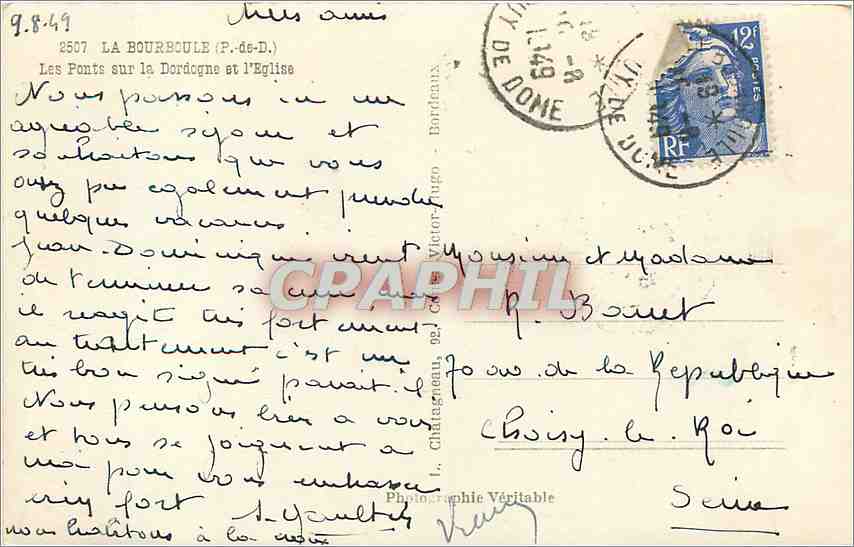 9.8.49
Mes amis
2507 LA BOURBOULE (P.-de-D.)
Les Ponts sur la Dordogne et l'Eglise
Nous passons ici un
agréable séjour et
souhaitons que vous
avez pu également prendre
quelques vacances.
Jean-Dominique vient
de terminer sa cure mais
il réagit très fortement
au traitement c'est un
très bon signe parait-il
Nous pensons bien à vous
et tous se joignent à
moi pour vous embrasser
bien fort
nous habitons à la
L. Chatagneau, 92, Cours Victor-Hugo - Bordeaux
Photographie Véritable
PUY DE DOME
1949
PUY DE DOME
1949
12F
POSTES
RF
CPAPHIL
Monsieur et Madame
R. Bonnet
70 av. de la République
Choisy-le-Roi
Seine